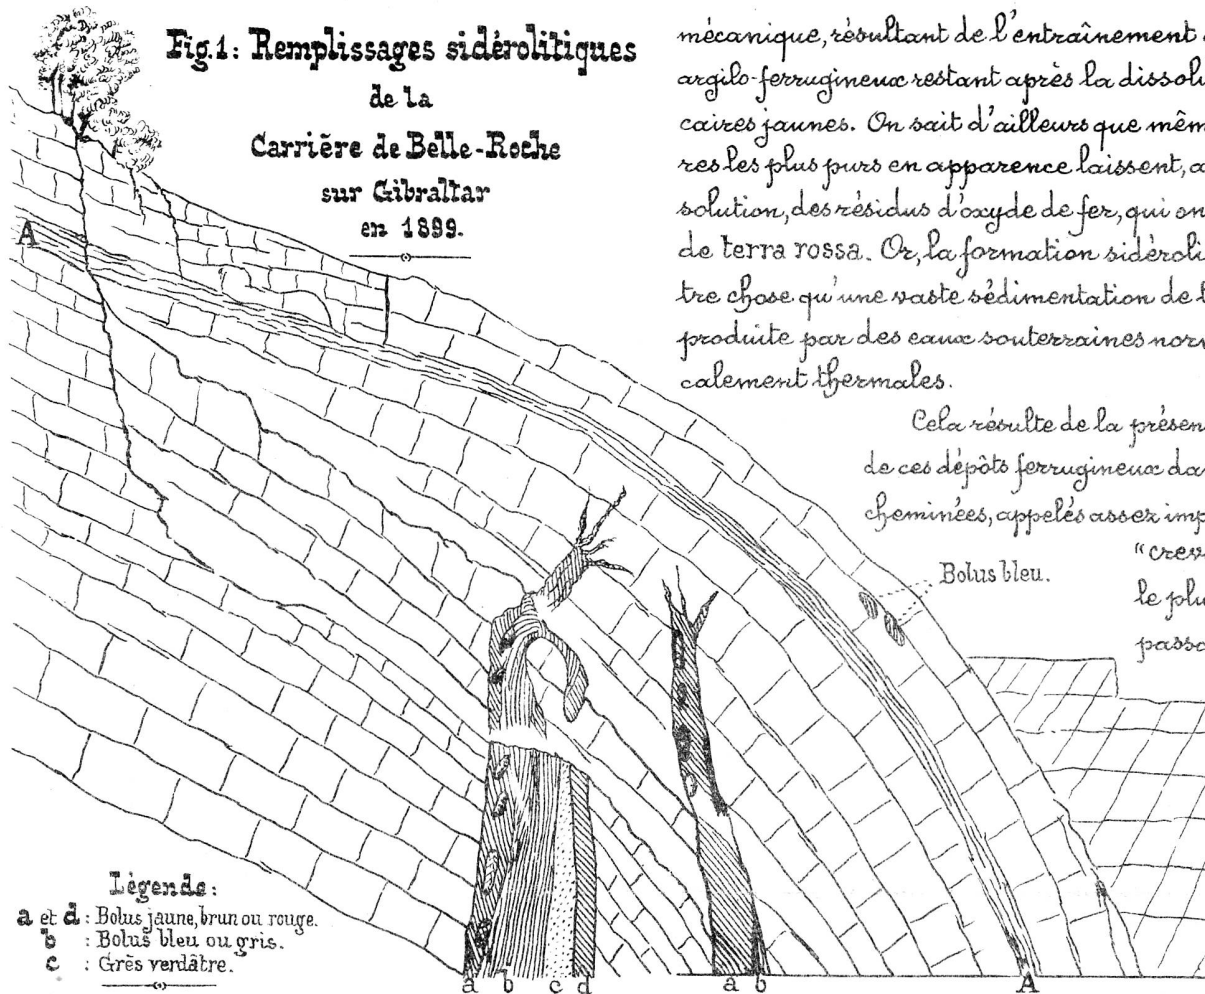 Fig.1: Remplissages sidérolitiques
de la
Carrière de Belle-Roche
sur Gibraltar
en 1899.
mécanique, résultant de l'entraînement
argilo-ferrugineux restant après la dissolu
caires jaunes. On sait d'ailleurs que mêm
res les plus purs en apparence laissent, a
solution, des résidus d'oxyde de fer, qui on
de terra rossa. Or, la formation sidéroli
tre chose qu'une vaste sédimentation de t
produite par des eaux souterraines nor
calement thermales.
Cela résulte de la présen
de ces dépôts ferrugineux da
cheminées, appelés assez imp
"crev
le plu
passa
A
Bolus bleu.
Légende:
a et d : Bolus jaune, brun ou rouge.
b : Bolus bleu ou gris.
c : Grès verdâtre.
a b c d a b A